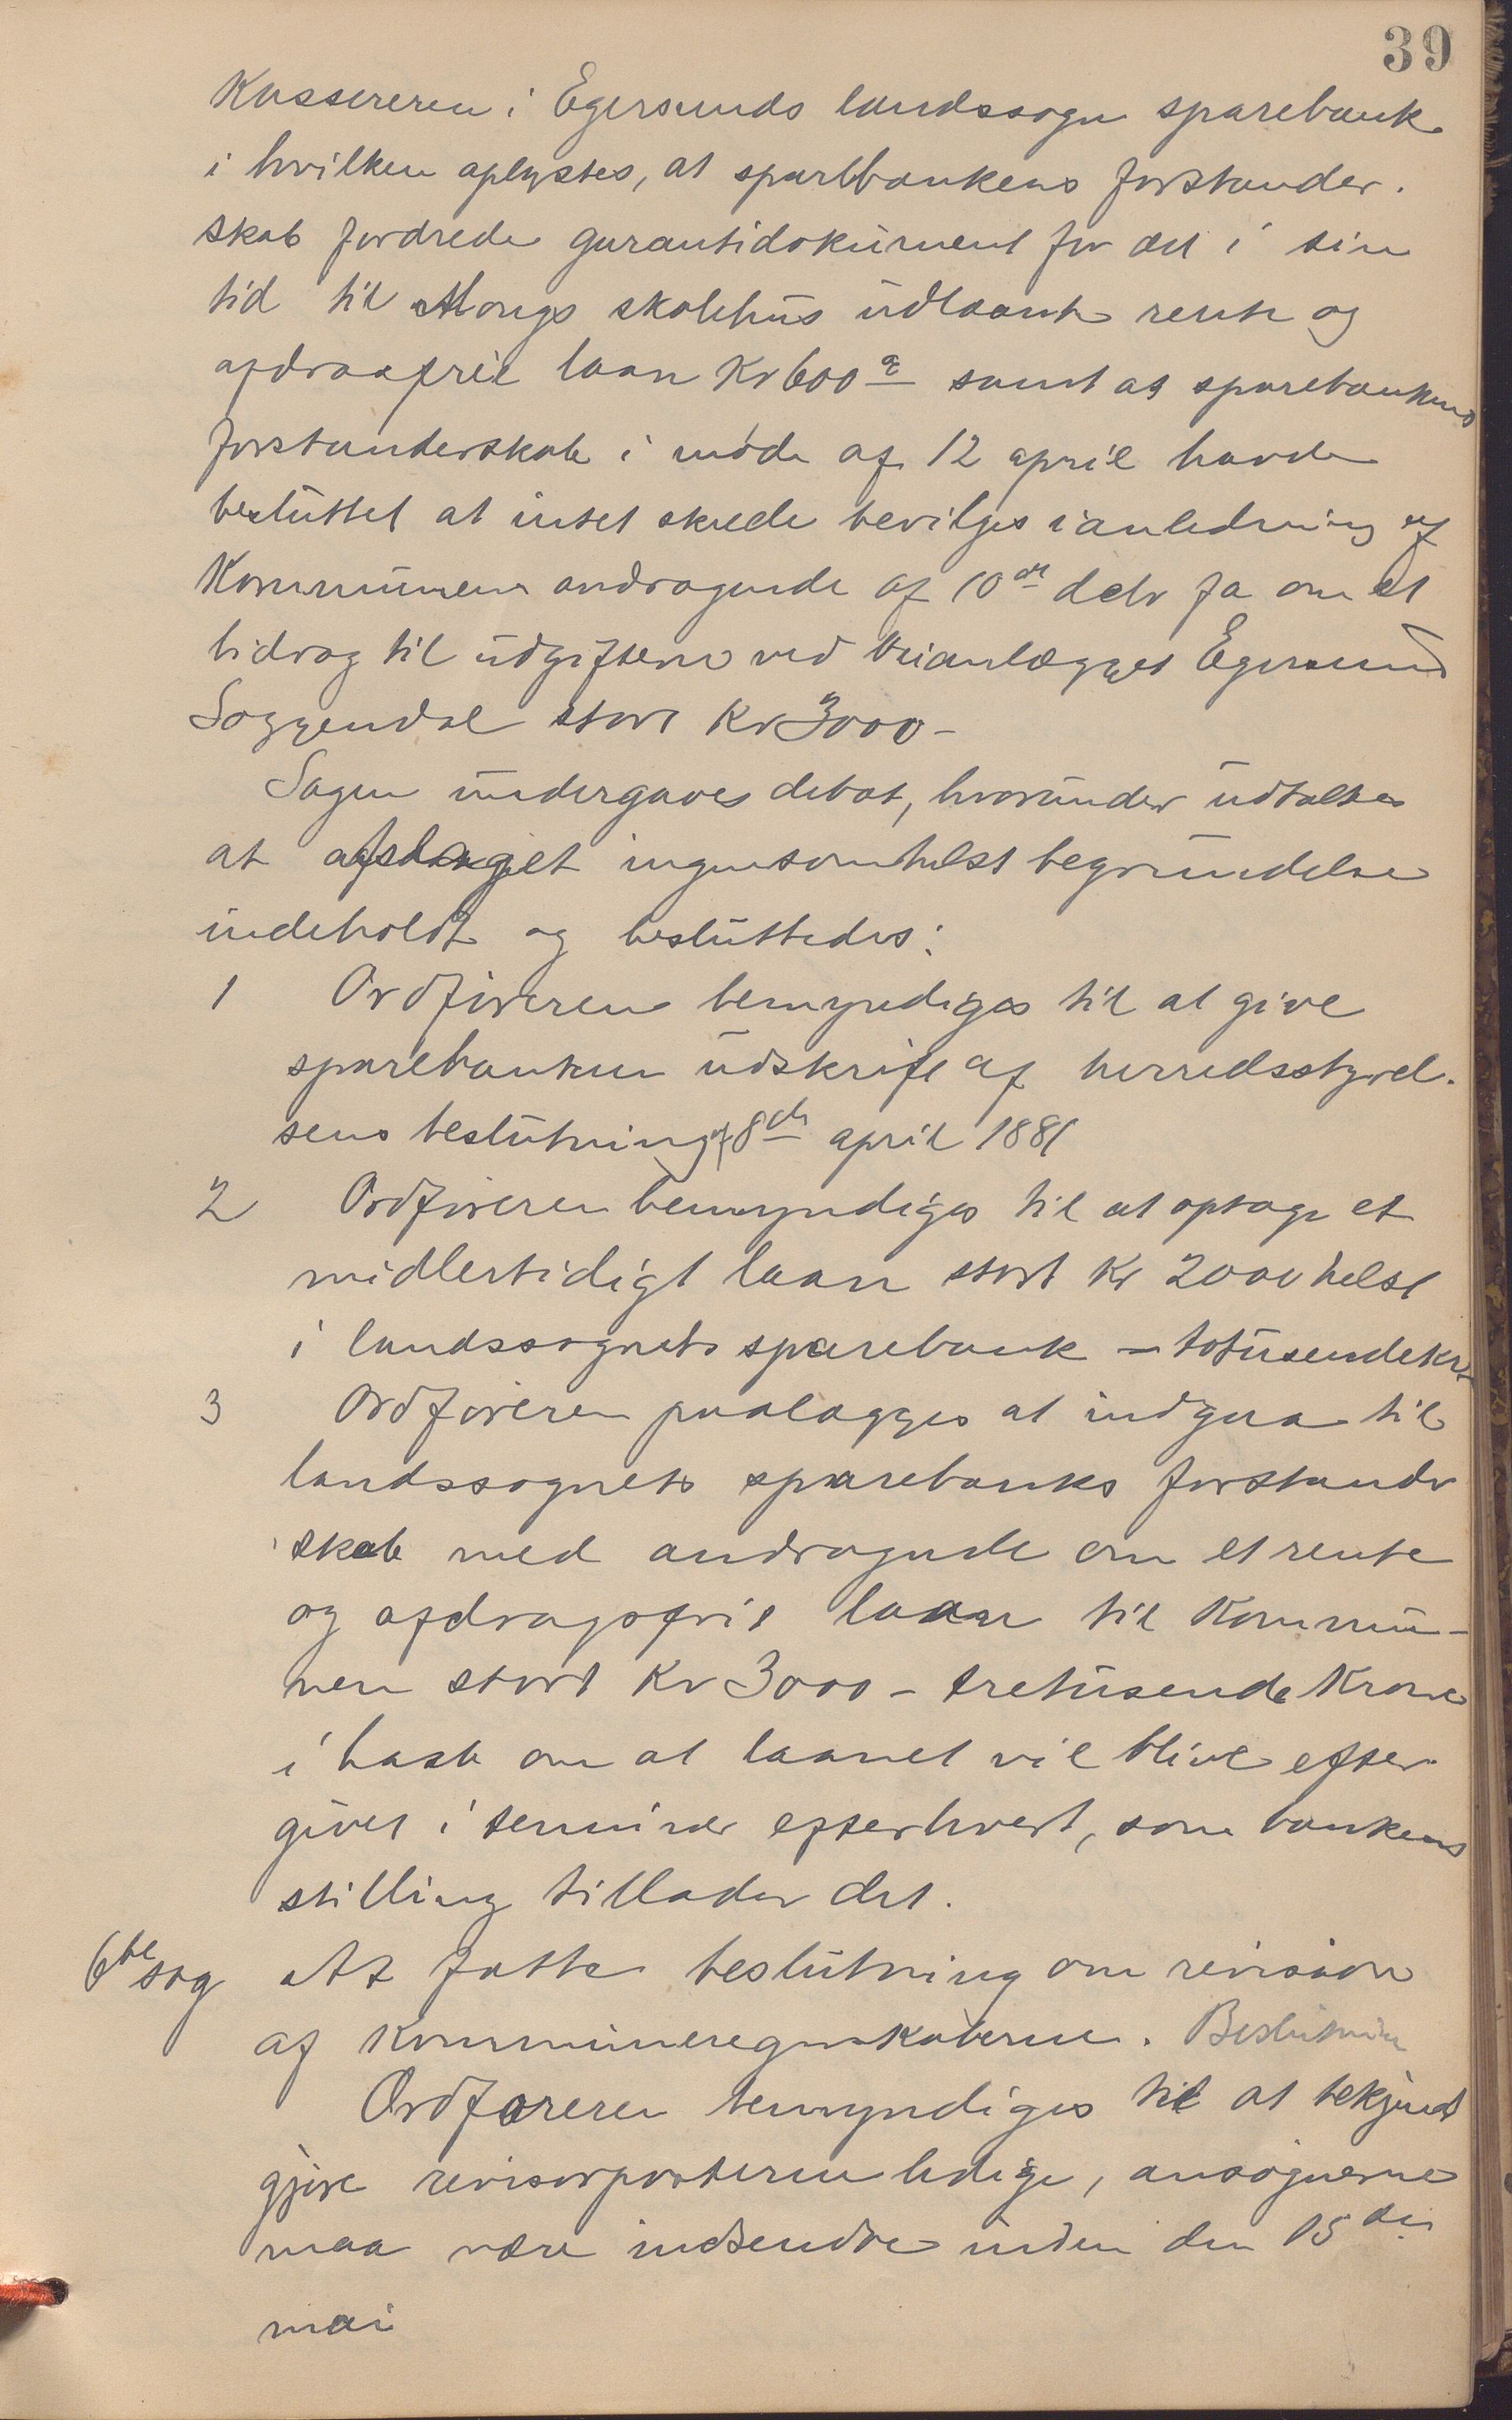 39
Kassereren i Egersunds landssogn sparebank
i hvilken oplystes, at sparebankens forstander-
skab fordrede garantidokument for det i sin
tid til Mongs skolehus udlaante rente og
afdragfrie laan Kr 600 samt at sparebankens
forstanderskab i møde af 12 april havde
besluttet at intet skulde bevilges i anledning af
Kommunens andragende af 10de debr fa om et
bidrag til udgifterne ved veianlægget Egersund
Soggendal stort Kr 3000-
Sagen undergaves debat, hvorunder udtaltes
at afslaget ingensomhelst begrundelse
indeholdt og besluttedes:
1 Ordføreren bemyndiges til at give
sparebanken udskrift af herredsstyrel-
sens beslutning af 8de april 1881
2 Ordføreren bemyndiges til at optage et
midlertidigt laan stort Kr 2000 helst
i landssognets sparebank - totusendekr
3 Ordføreren paalægges at indgaa til
landssognets sparebanks forstander
skab med andragende om et rente
og afdragsfrit laan til Kommu-
nen stort Kr 3000 - tretusende Kroner
i haab om at laanet vil blive efter-
givet i terminer efterhvert, som bankens
stilling tillader det.
6te sag At fatte beslutning om revision
af Kommuneregnskaberne. Beslutning
Ordføreren bemyndiges til at bekjendt
gjøre revisorposterne ledige, ansøgnerne
maa være indsendte inden den 15de
mai